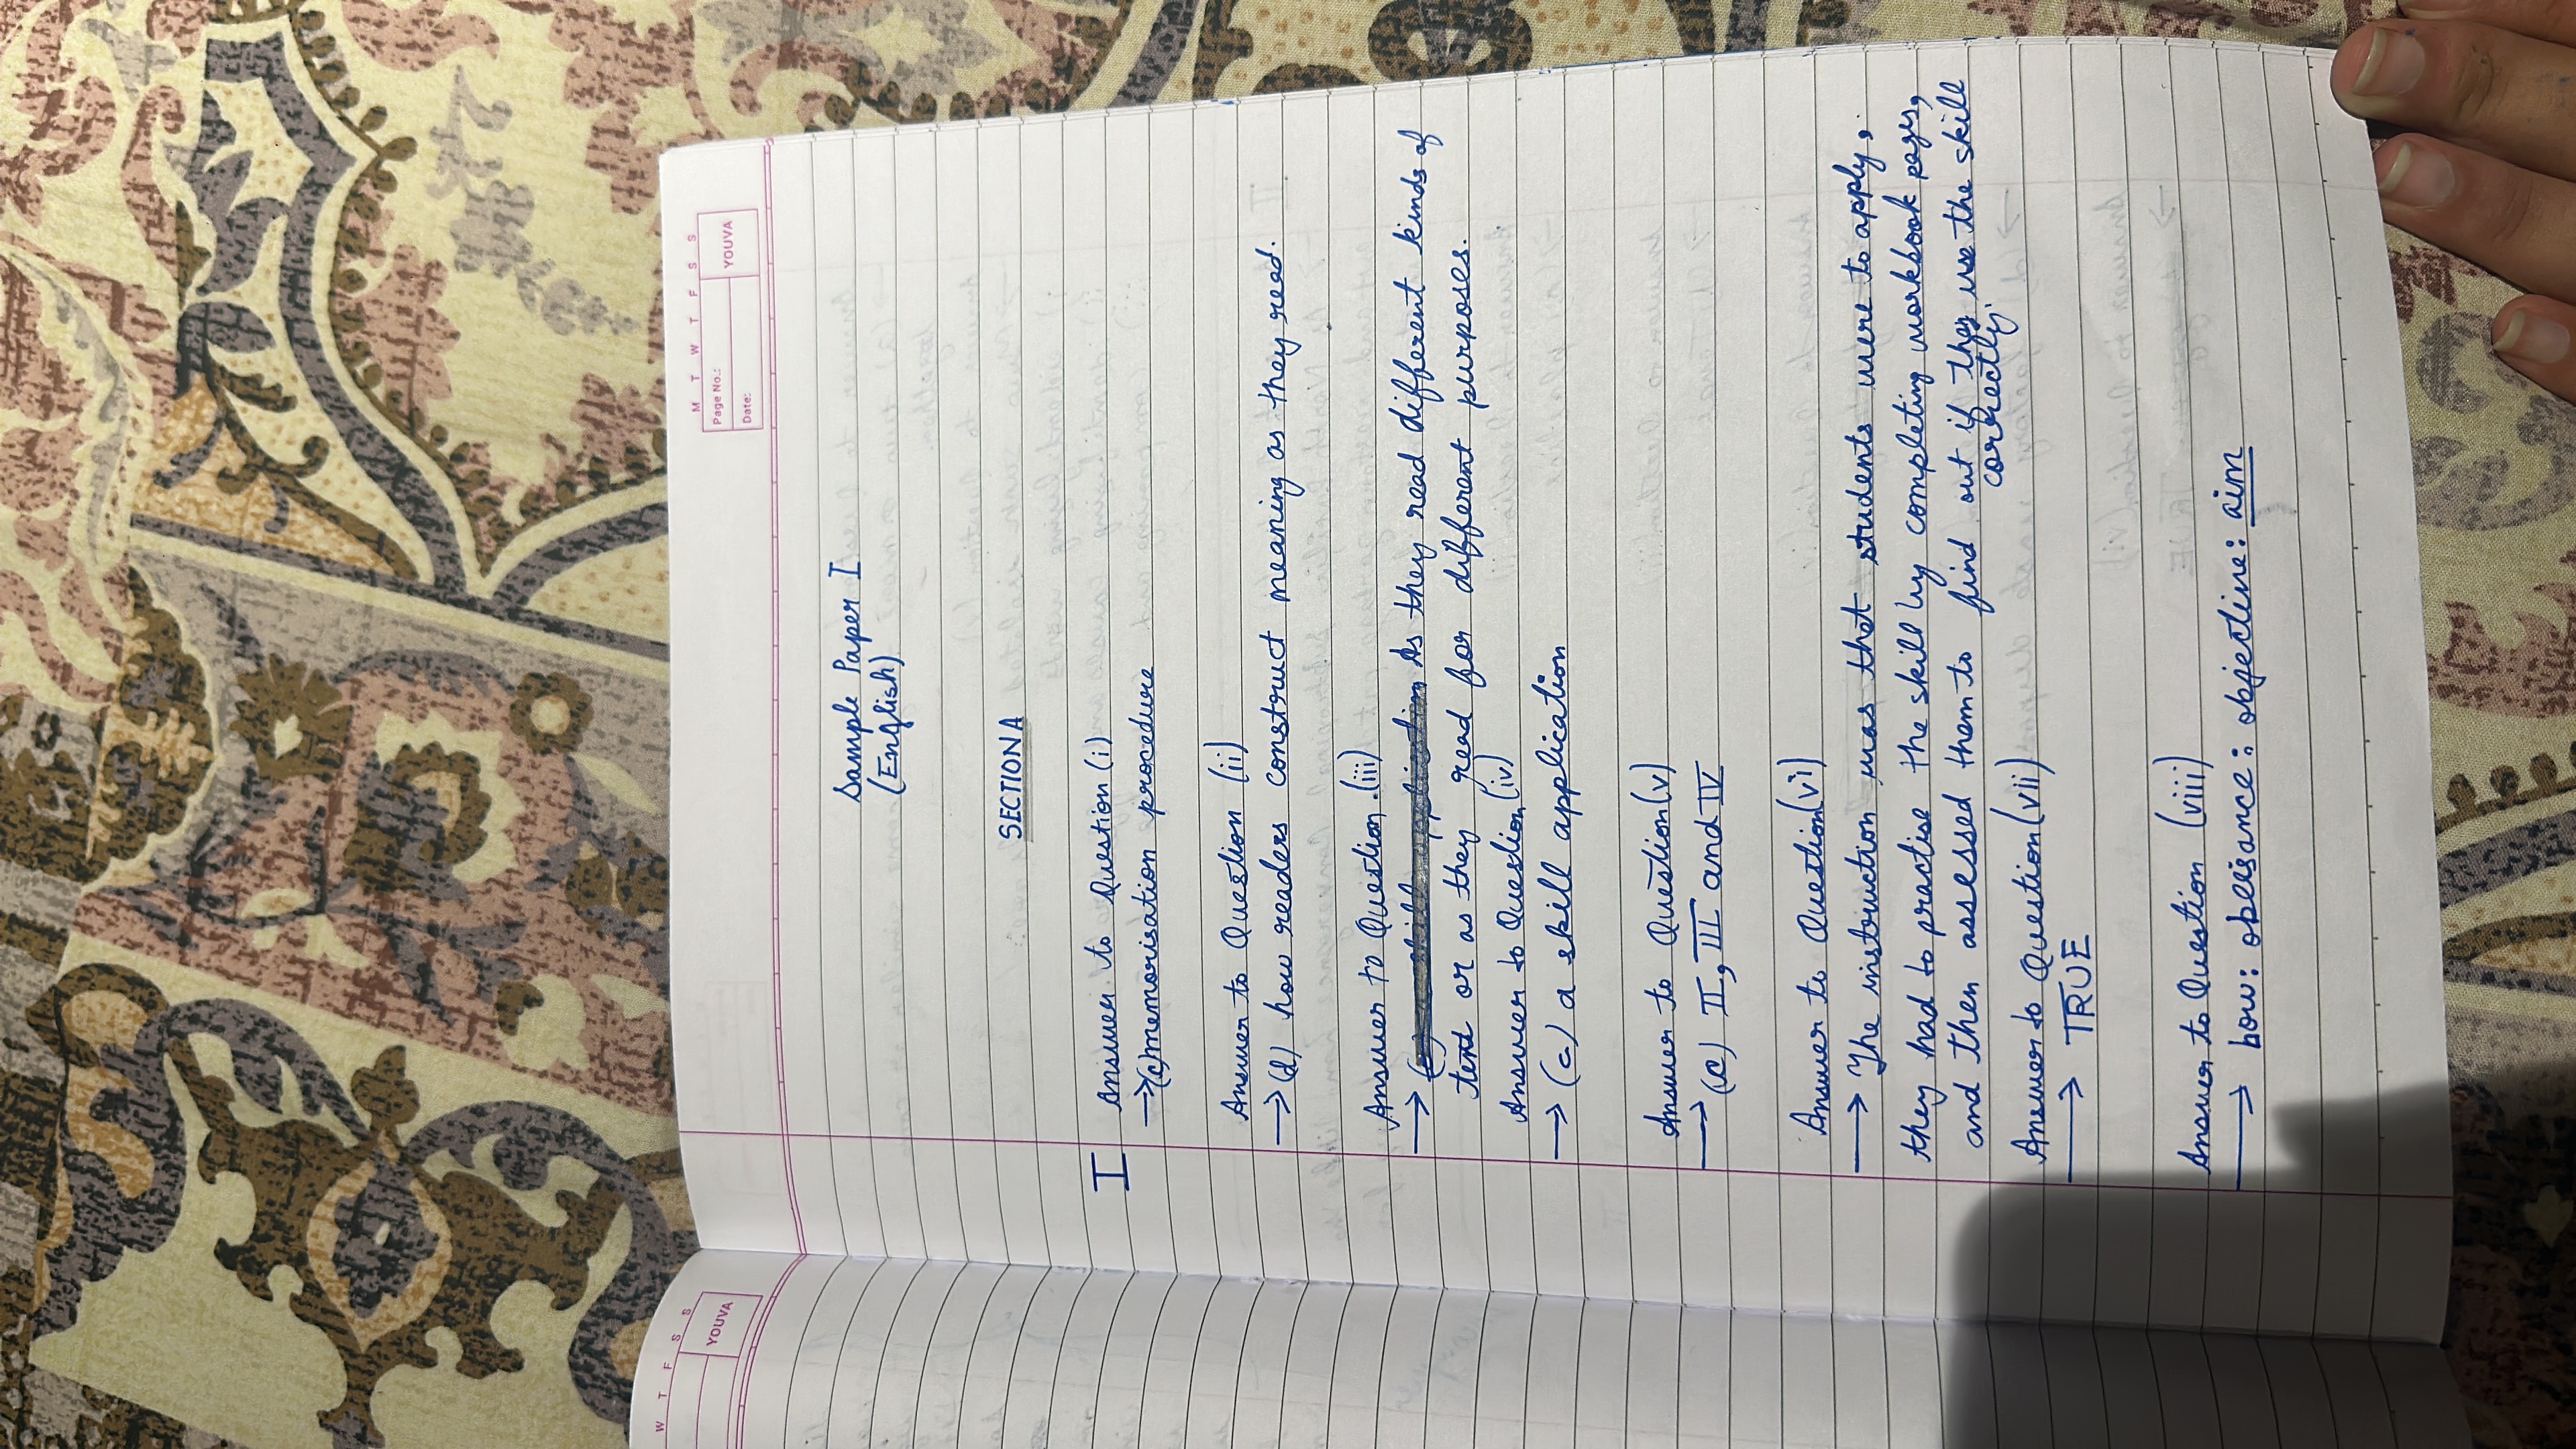 M T W T F S S
Page No.:
Date:
YOUVA
Sample Paper I
(English)
SECTION A
I
Answer to Question (i)
→ (c) memorisation procedure
Answer to Question (ii)
→ (d) how readers construct meaning as they read.
Answer to Question (iii)
→ As they read different kinds of
text or as they read for different purposes.
Answer to Question (iv)
→ (c) a skill application
Answer to Question (v)
→ (c) II, III and IV
Answer to Question (vi)
→ The instruction was that students were to apply,
they had to practise the skill by completing workbook pages,
and then assessed them to find out if they use the skill
correctly.
Answer to Question (vii)
→ TRUE
Answer to Question (viii)
→ bow: obeisance:: objective: aim
W T F S S
YOUVA